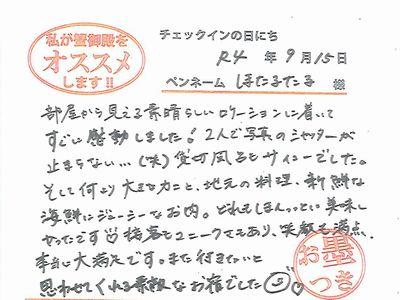 私が蟹御殿を
オススメ
します!!
チェックインの日にち
R4 年 9月 15日
ペンネーム ほたるたる 様
部屋から見える素晴らしいロケーションに着いて
すごい感動しました! 2人で写真のシャッターが
止まらない…(笑) 貸切風呂とサイコーでした。
そして何より大きなカニと、地元の料理、新鮮な
海鮮にジューシーなお肉。どれもほんっっとに美味し
かったです♡ 接客もユニークさあり、笑顔も満点
本当に大満足です。また行きたいと
思わせてくれる素敵なお宿でした
お墨
つき